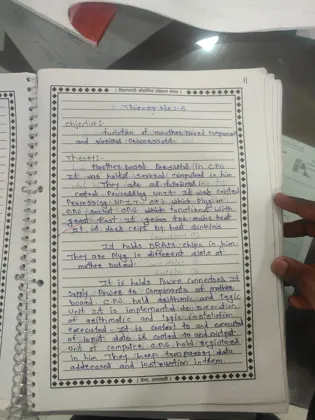 11
Objective:-
function of mother board component
and various Parameters.
Theory:-
Mother board Presents in C.P.U
It was holds several component in him
They are as follows:-
central Processing unit. It was central
Processing UNIT. CPU which Plug in
CPU socket CPU which functional with
great fast it gains too much heat
It is deck chips by heat sinking
It holds DRAM chips in him
They are plug in different slots of
mother board.
It is holds Power connectors It
supply Power to components of mother
board C.P.U. hold arithmetic and logic
unit It is implemented to execution
of arithmetic and logic instruction
executed. It is control to and executed
of input data is control to and output
unit of computer C.P.U. hold registered
in him They keep temporary data
addressed and instruction in them.